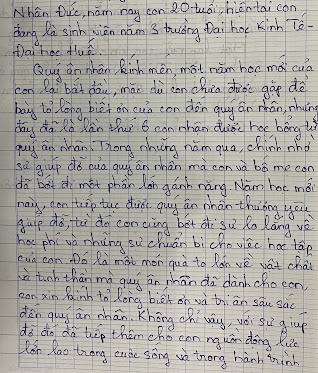 Nhân Đức, năm nay con 20 tuổi, hiện tại con
đang là sinh viên năm 3 trường Đại học Kinh Tế -
Đại học Huế.
Quý ân nhân kính mến, một năm học mới của
con lại bắt đầu, mặc dù con chưa được gặp để
bày tỏ lòng biết ơn của con đến quý ân nhân, nhưng
đây đã là lần thứ 6 con nhận được học bổng từ
quý ân nhân. Trong những năm qua, chính nhờ
sự giúp đỡ của quý ân nhân mà con và bố mẹ con
đã bớt đi một phần lớn gánh nặng. Năm học mới
này, con tiếp tục được quý ân nhân thương yêu
giúp đỡ, từ đó con cũng bớt đi sự lo lắng về
học phí và những sự chuẩn bị cho việc học tập
của con. Đó là một món quà to lớn về vật chất
và tinh thần mà quý ân nhân đã dành cho con,
con xin kính tỏ lòng biết ơn và tri ân sâu sắc
đến quý ân nhân. Không chỉ vậy, với sự giúp
đỡ đó, đã tiếp thêm cho con nguồn động lực
lớn lao trong cuộc sống và trong hành trình